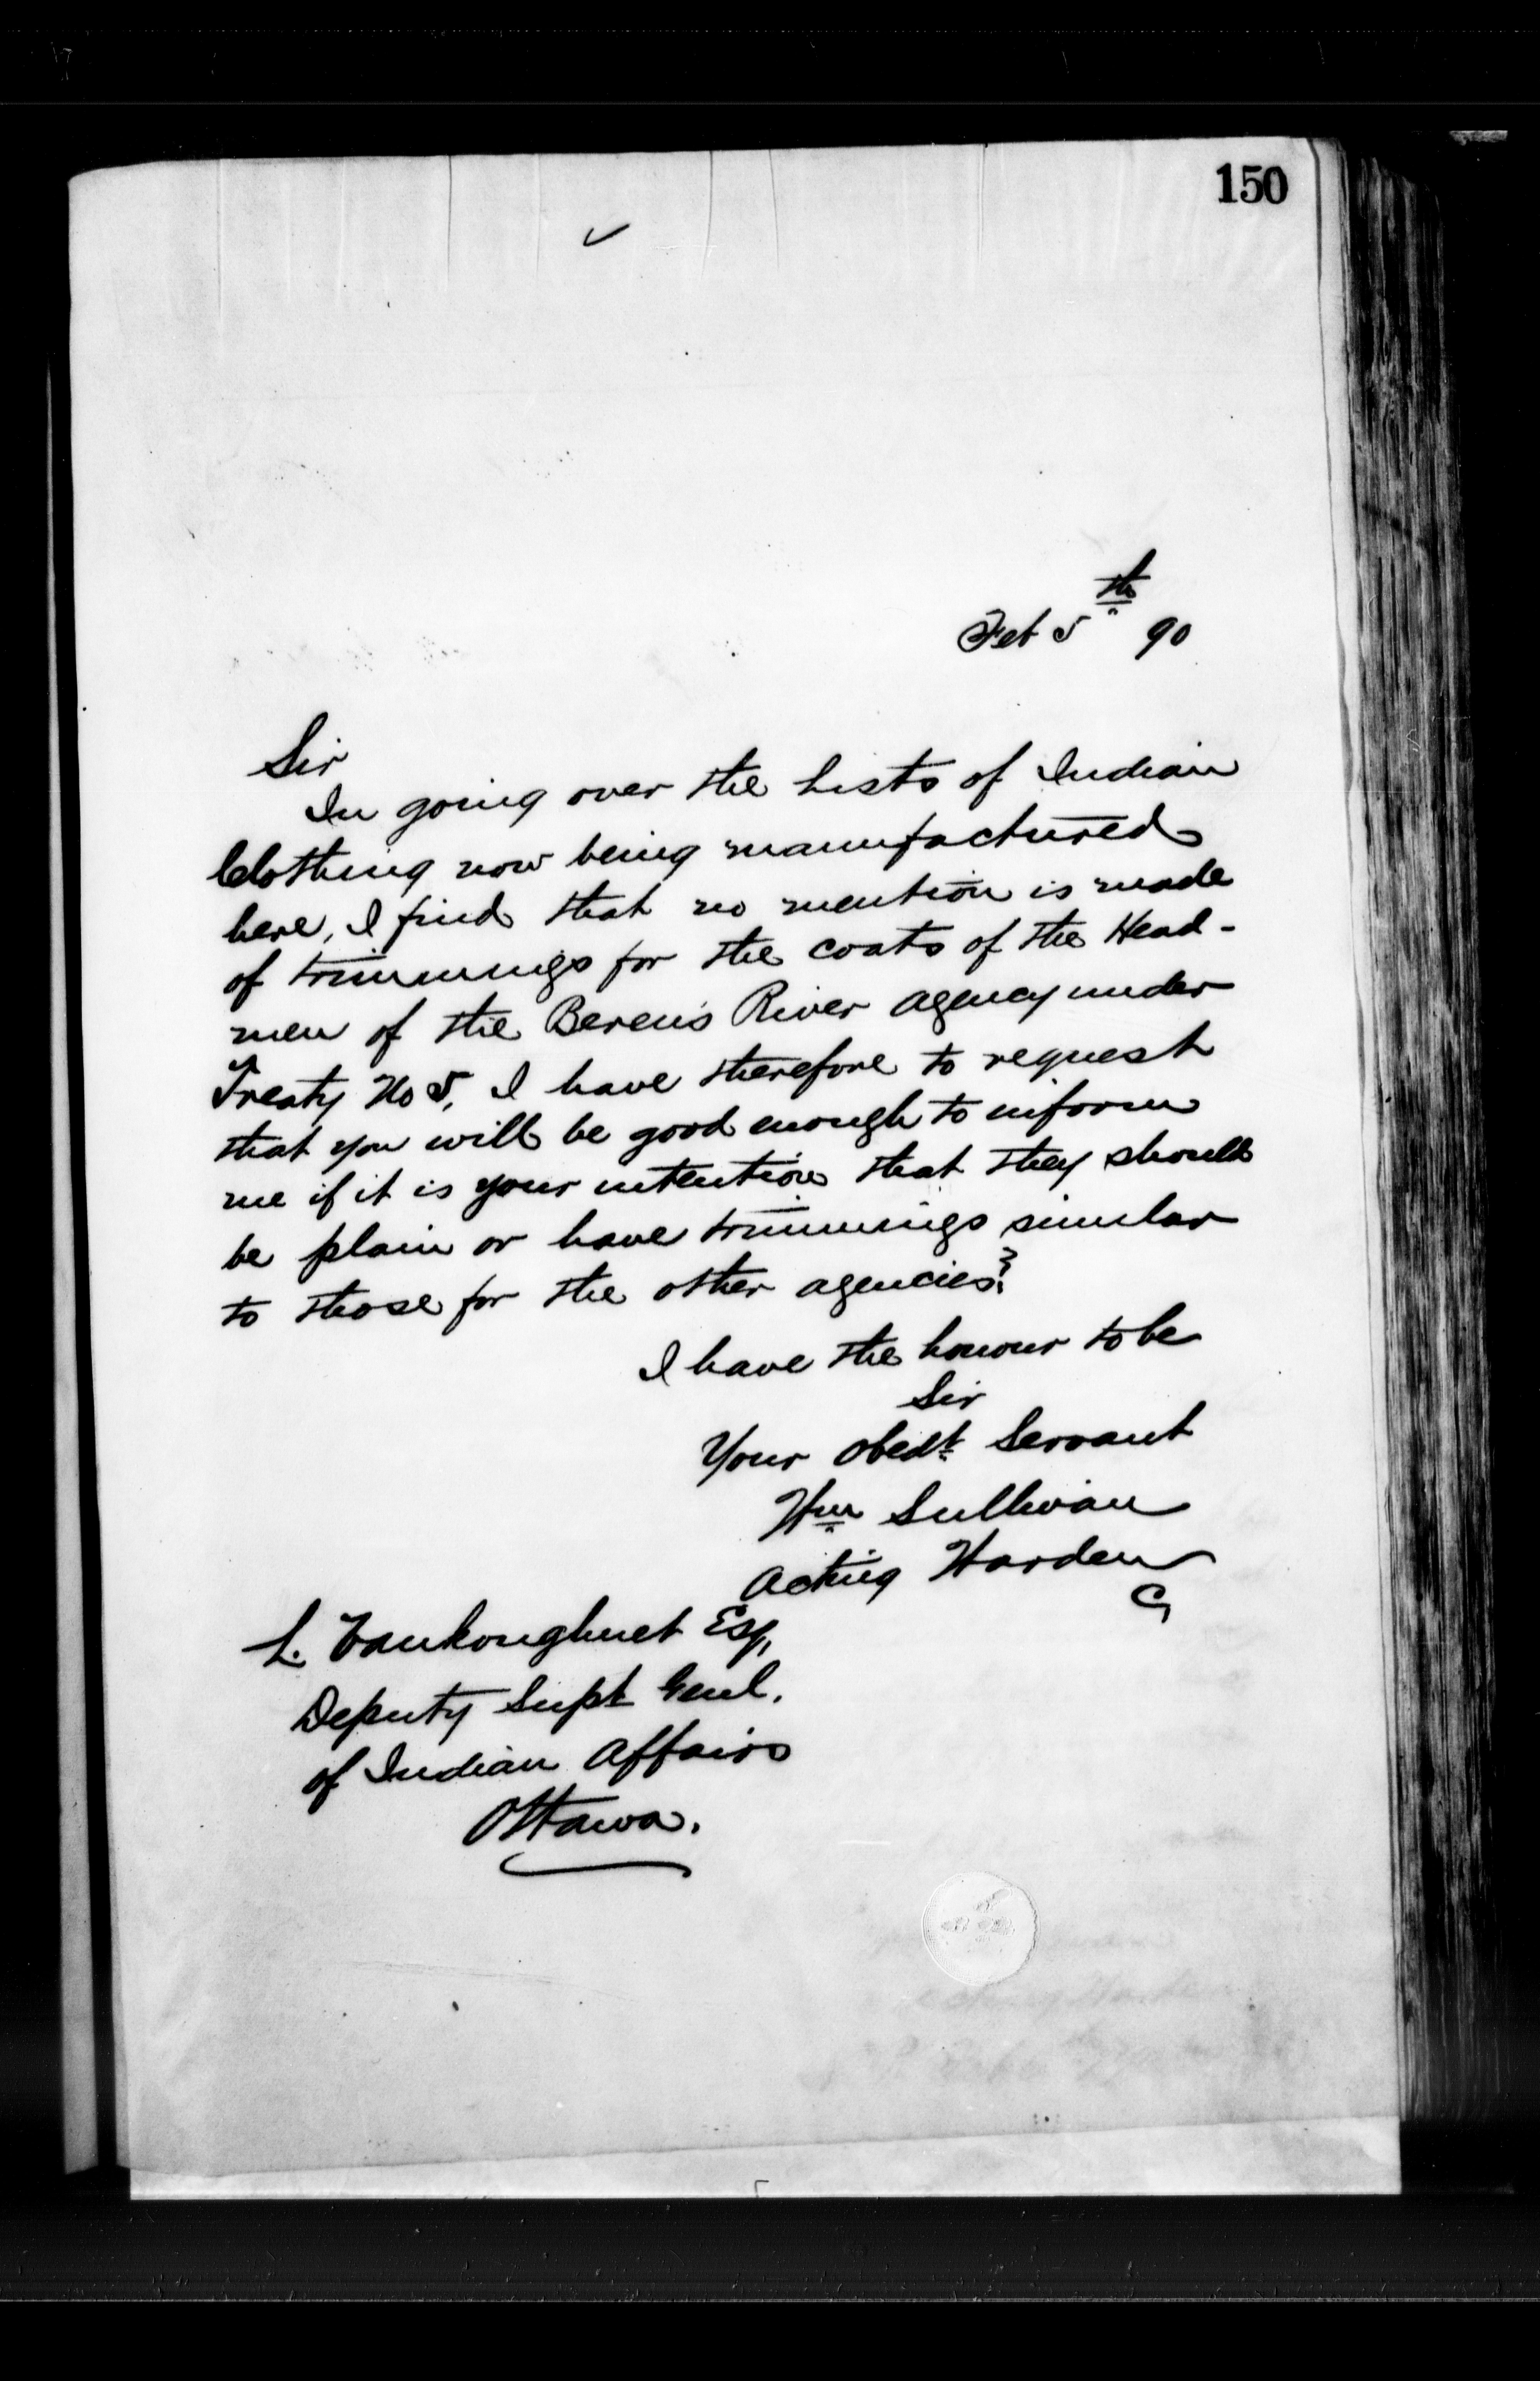 150
Feb 5th 90
Sir
In going over the Lists of Indian
Clothing now being manufactured
here, I find that no mention is made
of trimmings for the coats of the Head-
men of the Berens River agency under
Treaty No 5, I have therefore to request
that you will be good enough to inform
me if it is your intention that they should
be plain or have trimmings similar
to those for the other agencies?
I have the honour to be
Sir
Your Obedt Servant
Wm Sullivan
Acting Warden
L. Vankoughnet Esq,
Deputy Supt Genl.
of Indian Affairs
Ottawa.